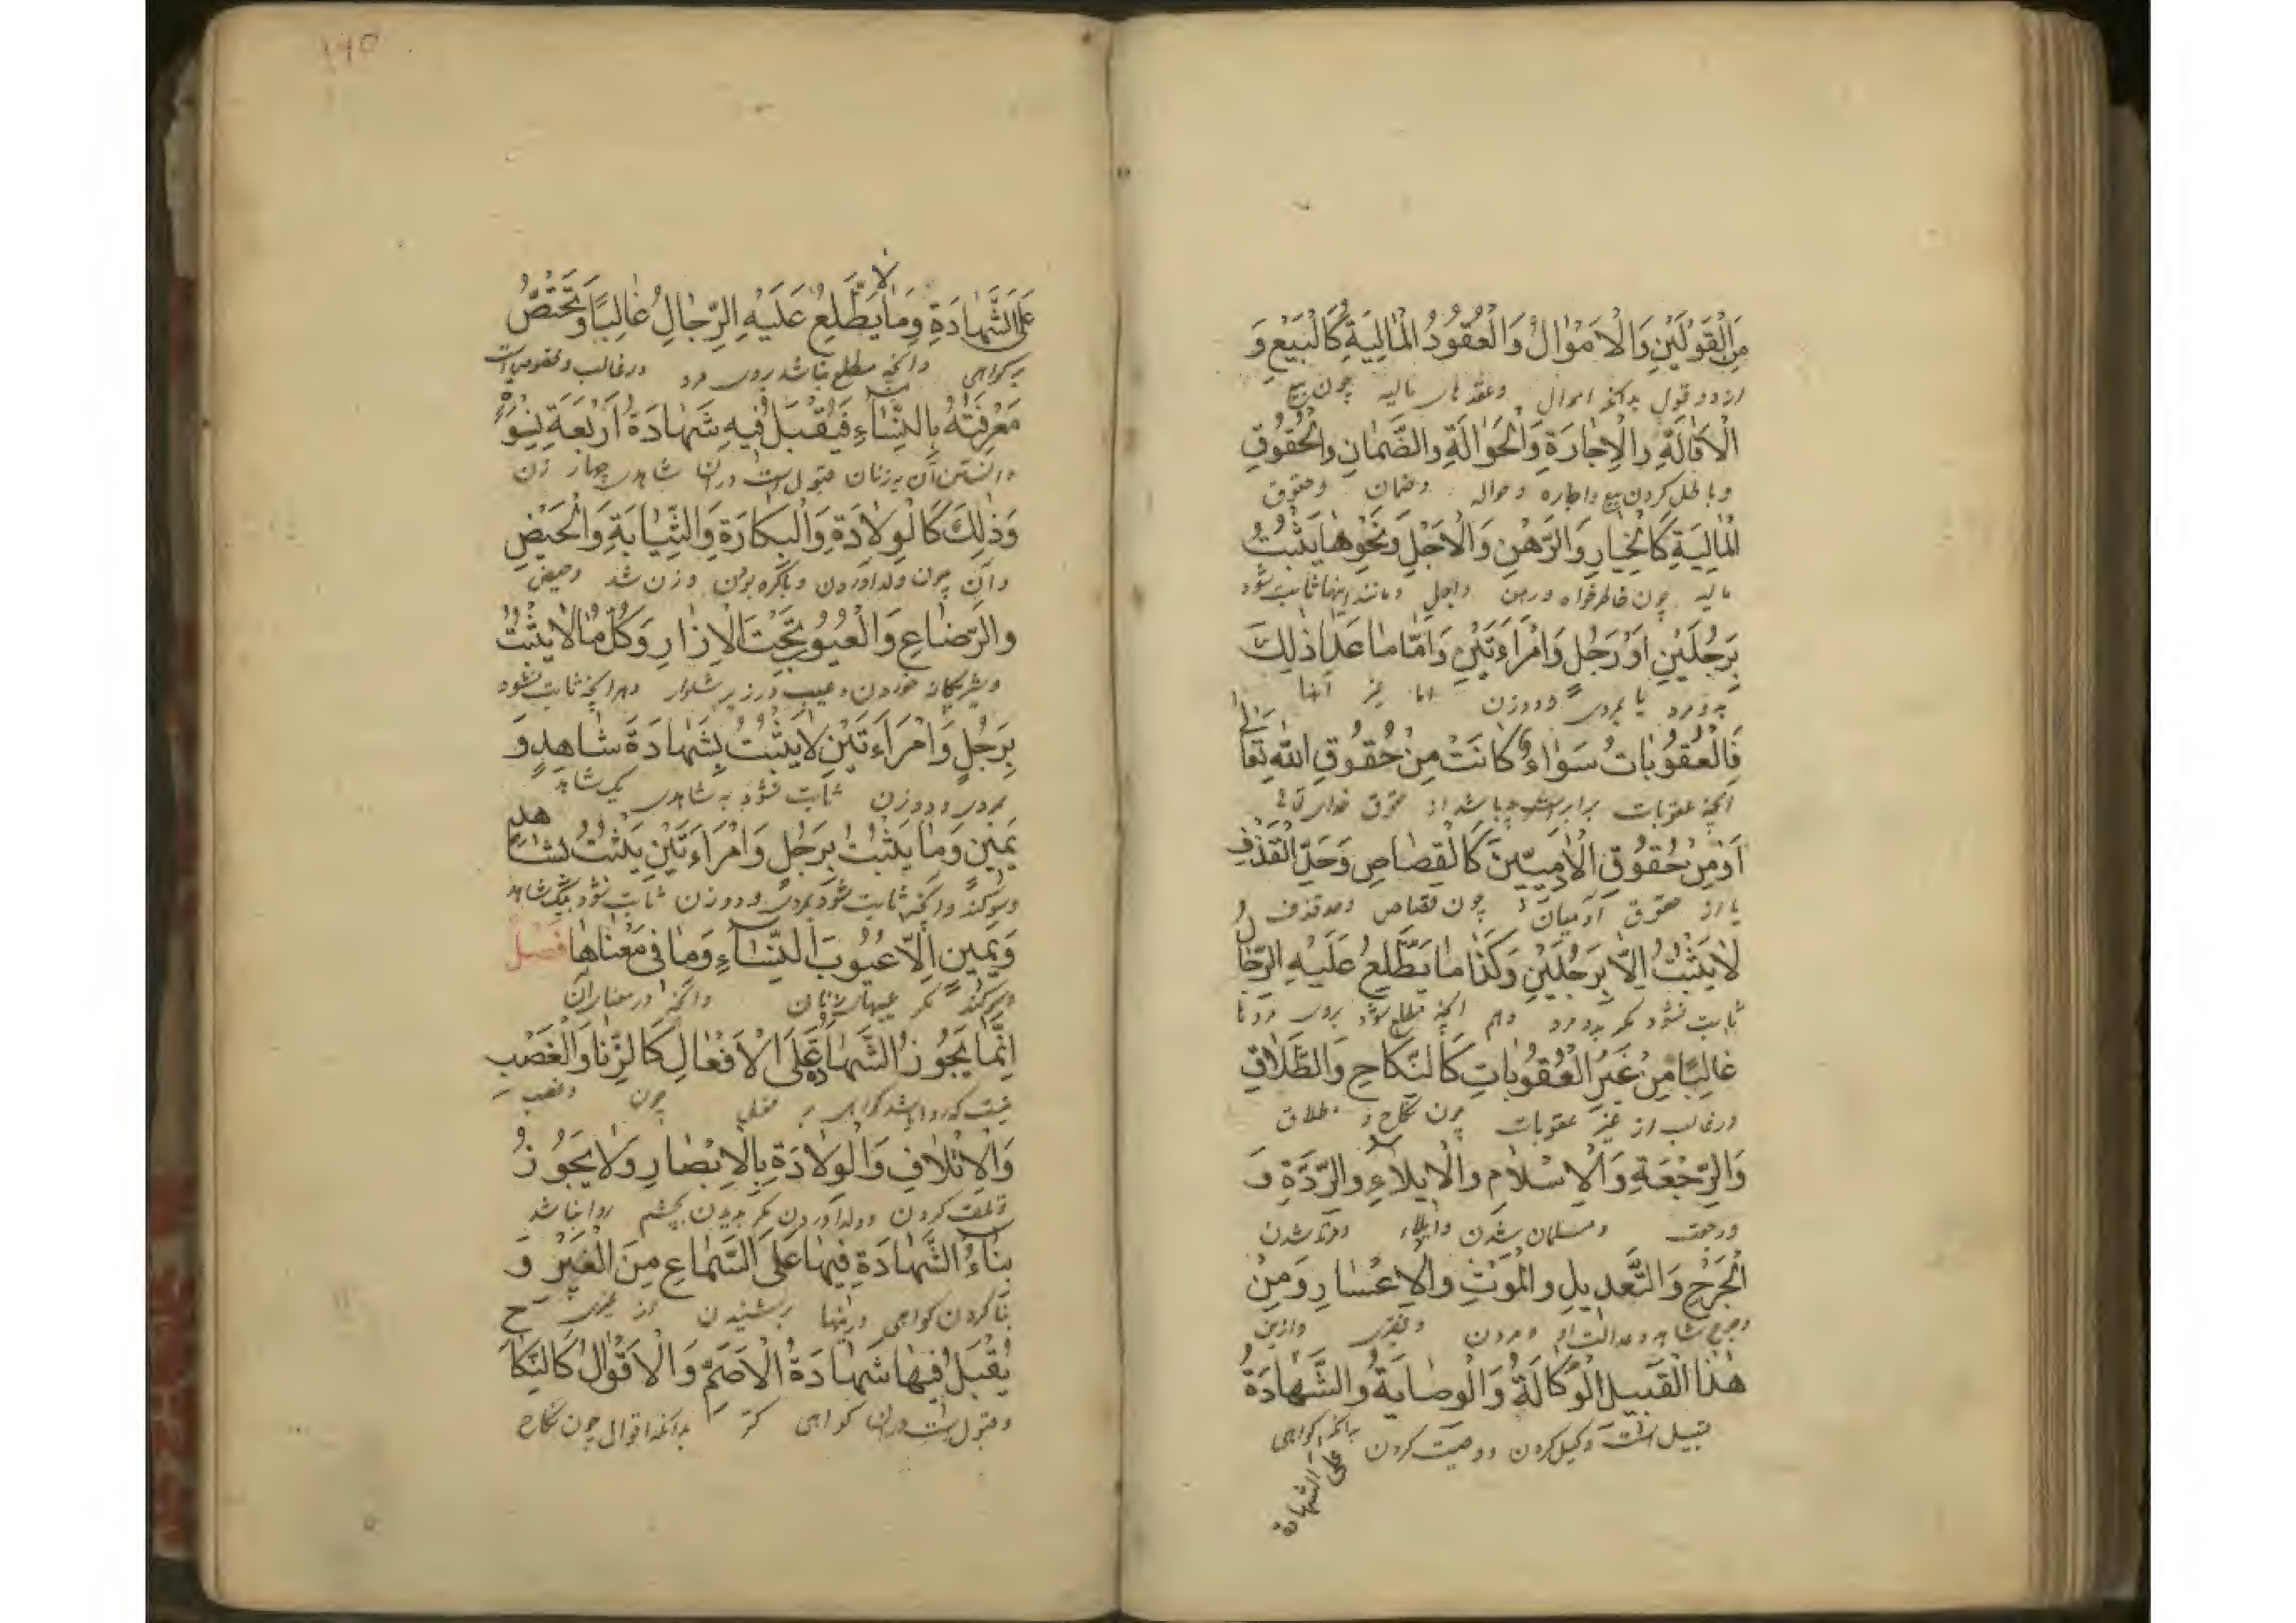 مِنَ الْقَوْلَيْنِ وَالْاَمْوَالُ وَالْعُقُودُ الْمَالِيَةِ كَالْبَيْعِ وَ
از دو قول بدانکه اموال وعقدهای مالیه چون بیع
الْاِقَالَةِ وَالْاِجَارَةِ وَالْحَوَالَةِ وَالضَّمَانِ وَالْحُقُوقِ
وباطل کردن بیع واجاره وحواله وضمان وحقوق
الْمَالِيَةِ كَالْخِيَارِ وَالرَّهْنِ وَالْاَجَلِ وَنَحْوِهَا يَثْبُتُ
مالیه چون خاطرخواه ورهن واجل ومانند اینها ثابت شود
بِرَجُلَيْنِ اَوْ رَجُلٍ وَامْرَاَتَيْنِ وَاَمَّا مَا عَدَا ذٰلِكَ
بدو مرد یا بمردی ودوزن اما غیر آنها
فَالْعُقُوبَاتُ سَوَاءٌ كَانَتْ مِنْ حُقُوقِ اللّٰهِ تَعَالٰى
آنچه عقوبات برابرست باشد از حقوق خدای تعالی
اَوْ مِنْ حُقُوقِ الْاٰدَمِيِّينَ كَالْقِصَاصِ وَحَدِّ الْقَذْفِ
یا از حقوق آدمیان چون قصاص وحد قذف
لَا يَثْبُتُ اِلَّا بِرَجُلَيْنِ وَكَذَا مَا يَطَّلِعُ عَلَيْهِ الرِّجَالُ
ثابت نشود مگر بدو مرد وهم آنچه مطلع شود بروی مردنا
غَالِبًا مِنْ غَيْرِ الْعُقُوبَاتِ كَالنِّكَاحِ وَالطَّلَاقِ
درغالب از غیر عقوبات چون نکاح و طلاق
وَالرَّجْعَةِ وَالْاِسْلَامِ وَالْاِيلَاءِ وَالرِّدَّةِ وَ
ورجعت ومسلمان شدن وایلاء ومرتد شدن
الْجَرْحِ وَالتَّعْدِيلِ وَالْمَوْتِ وَالْاِعْسَارِ وَمِنْ
وجرح شاهد وعدالت او ومردن وفقیری وازین
هٰذَا الْقَبِيلِ الْوَكَالَةُ وَالْوِصَايَةُ وَالشَّهَادَةُ
قبیل است وکیل کردن ووصیت کردن بدانکه کواهی
على الشهادة
١٩٥
عَلَى الشَّهَادَةِ وَمَا لَا يَطَّلِعُ عَلَيْهِ الرِّجَالُ غَالِبًا وَتَخْتَصُّ
بر کواهی وآنچه مطلع نباشد بروی مرد درغالب ومخصوص است
مَعْرِفَتُهُ بِالنِّسَاءِ فَيُقْبَلُ فِيهِ شَهَادَةُ اَرْبَعَةِ نِسْوَةٍ
دانستن آن بزنان مقبول است دران شاهدی چهار زن
وَذٰلِكَ كَالْوِلَادَةِ وَالْبَكَارَةِ وَالثِّيَابَةِ وَالْحَيْضِ
وآن چون ولد آوردن وباکره بودن وزن شد وحیض
وَالرَّضَاعِ وَالْعُيُوبِ تَحْتَ الْاِزَارِ وَكُلُّ مَا لَا يَثْبُتُ
وشیر خوردن وعیب درزیر شلوار وهرآنچه ثابت نشود
بِرَجُلٍ وَامْرَاَتَيْنِ لَا يَثْبُتُ بِشَهَادَةِ شَاهِدٍ وَ
بمردی ودوزن ثابت نشود به شاهدی یک شاهد
يَمِينٍ وَمَا يَثْبُتُ بِرَجُلٍ وَامْرَاَتَيْنِ يَثْبُتُ بِشَاهِدٍ
وسوکند وآنچه ثابت شود بمردی ودوزن ثابت شود بیک شاهد
وَيَمِينٍ اِلَّا عُيُوبَ النِّسَاءِ وَمَا فِي مَعْنَاهَا فَصْلٌ
وسوکند مگر عیبهای زنان وآنچه درمعنای آن
اِنَّمَا يَجُوزُ الشَّهَادَةُ عَلَى الْاَفْعَالِ كَالزِّنَا وَالْغَصْبِ
نیست که روا باشد کواهی بر فعل چون وغصب
وَالْاِتْلَافِ وَالْوِلَادَةِ بِالْاِبْصَارِ وَلَا يَجُوزُ
وتلف کردن وولد آوردن مگر بدیدن بچشم روا نباشد
بِنَاءُ الشَّهَادَةِ فِيهَا عَلَى السَّمَاعِ مِنَ الْغَيْرِ وَ
بنا کردن کواهی دراینها برشنیدن از غیری
يُقْبَلُ فِيهَا شَهَادَةُ الْاَصَمِّ وَالْاَقْوَالُ كَالنِّكَاحِ
ومقبول است دران کواهی کر بدانکه اقوال چون نکاح